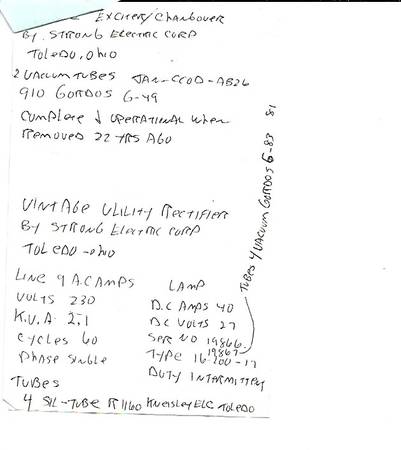 EXCITER/CHANGOVER
BY STRONG ELECTRIC CORP
TOLEDO, OHIO
2 VACUUM TUBES JAN-CCOD-AB26
910 GORDOS 6-49
COMPLETE & OPERATIONAL WHEN
REMOVED 22 YRS AGO
VINTAGE ULILITY RECTIFIER
BY STRONG ELECTRIC CORP
TOLEDO-OHIO
LINE 9 A.C AMPS
VOLTS 230
K.V.A 2.1
CYCLES 60
PHASE SINGLE
LAMP
D.C AMPS 40
DC VOLTS 27
SER NO 19866
19867
TYPE 16 200-17
DUTY INTERMITTENT
TUBES
4 SIL-TUBE R 1160 KNEISLEY ELC TOLEDO
TUBES 4 VACUUM GORDOS 6-83 81